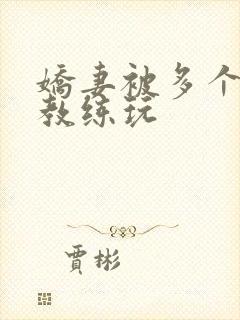 嬌妻被多个
教练玩
賈彬